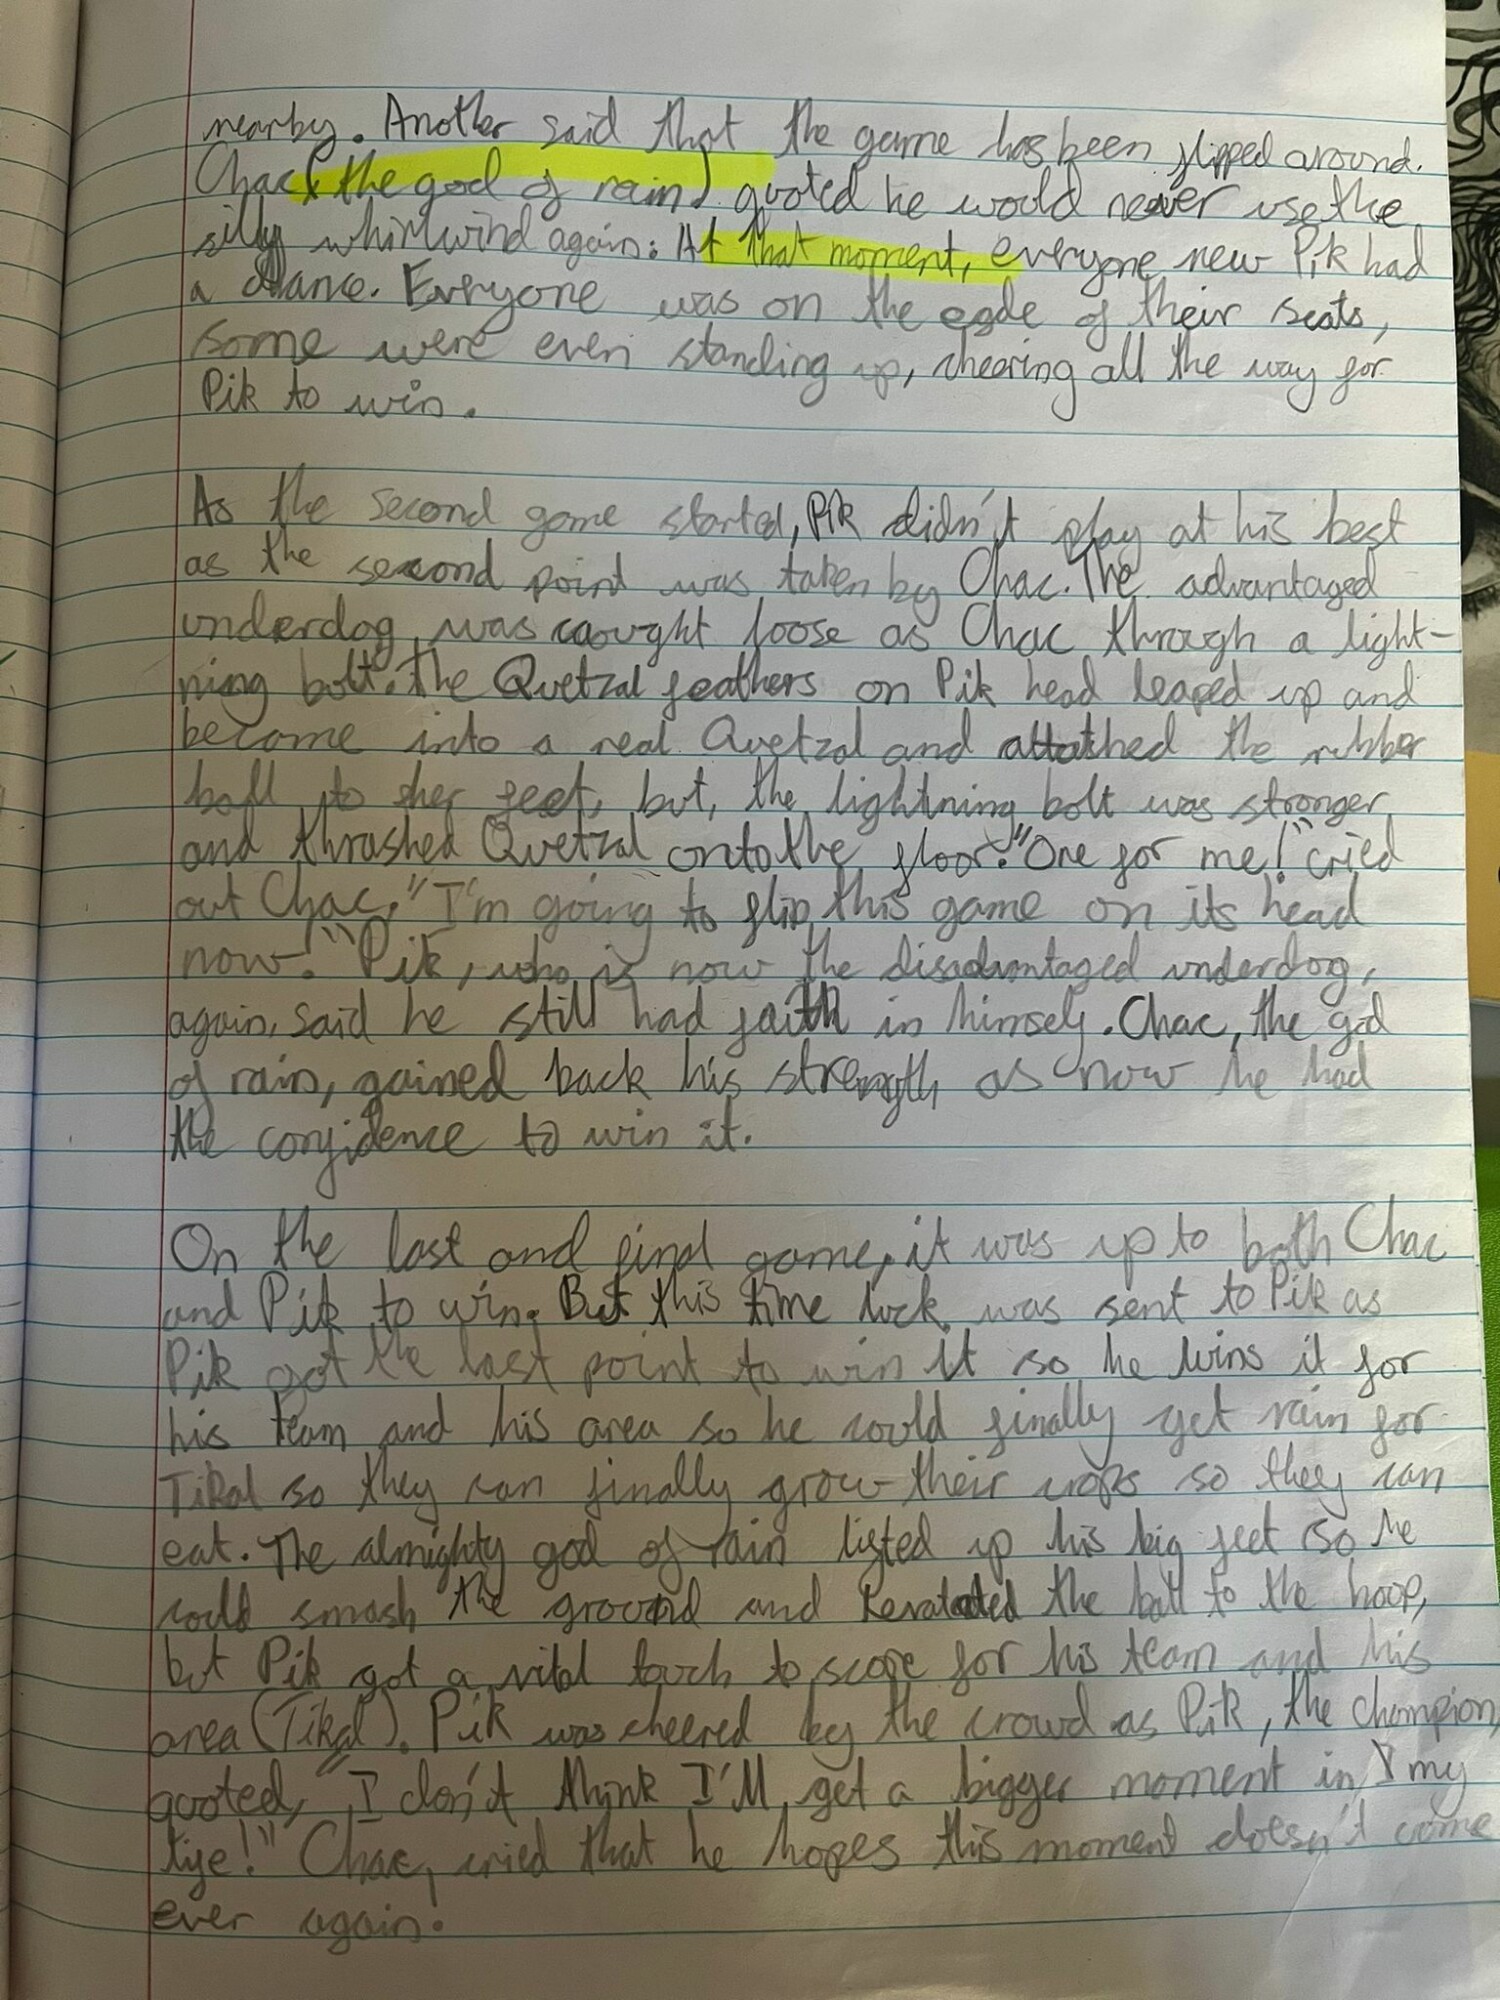 nearby. Another said that the game has been flipped around.
Chac (the god of rain) quoted he would never use the
silly whirlwind again. At that moment, everyone new Pik had
a chance. Everyone was on the egde of their seats,
some were even standing up, cheering all the way for
Pik to win.
As the second game started, Pik didn't play at his best
as the second point was taken by Chac. The advantaged
underdog, was caught loose as Chac through a light-
ning bolt. the Quetzal feathers on Pik head leaped up and
become into a real Quetzal and attatched the rubber
ball to sher feet, but, the lightning bolt was stronger
and thrashed Quetzal onto the floor. "One for me!" cried
out Chac, "I'm going to flip this game on its head
now!" Pik, who is now the disadvantaged underdog,
again, said he still had faith in himself. Chac, the god
of rain, gained back his strength as now he had
the confidence to win it.
On the last and final game, it was up to both Chac
and Pik to win. But this time luck was sent to Pik as
Pik got the last point to win it so he wins it for
his team and his area so he could finally get rain for
Tikal so they can finally grow their crops so they can
eat. The almighty god of rain lifted up his big feet so he
could smash the ground and the ball to the hoop,
but Pik got a vital touch to score for his team and his
area (Tikal). Pik was cheered by the crowd as Pik, the champion,
quoted, "I don't think I'll get a bigger moment in my
life!" Chac, cried that he hopes this moment doesn't come
ever again.